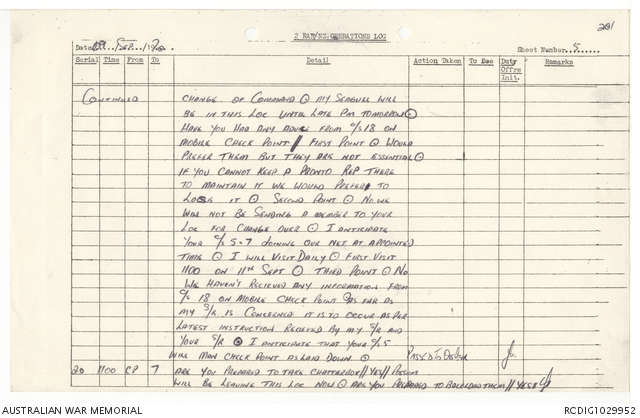 2 RAR/NZ OPERATIONS LOG
201
Date 09 / SEP / 1970.
Sheet Number 5
Serial Time From To Detail Action Taken To Dee Duty Offrs Init. Remarks
CONTINUED
CHANGE OF COMMAND ⊙ MY SEAGULL WILL
BE IN THIS LOC UNTIL LATE PM TOMORROW ⊙
HAVE YOU HAD ANY FROM C/S 18 ON
MOBILE CHECK POINT // FIRST POINT ⊙ WOULD
PREFER THEM BUT THEY ARE NOT ESSENTIAL ⊙
IF YOU CANNOT KEEP A PRONTO REP THERE
TO MAINTAIN IT WE WOULD PREFER TO
LOSE IT ⊙ SECOND POINT ⊙ NO WE
WILL NOT BE SENDING A MEMBER TO YOUR
LOC FOR CHANGE OVER ⊙ I ANTICIPATE
YOUR C/S 5-7 JOINING OUR NET AT APPOINTED
TIME ⊙ I WILL VISIT DAILY ⊙ FIRST VISIT
1100 ON 11TH SEPT ⊙ THIRD POINT ⊙ NO
WE HAVEN'T RECIEVED ANY INFORMATION FROM
C/S 18 ON MOBILE CHECK POINT ⊙ AS FAR AS
MY S/R IS CONCERNED IT IS TO OCCUR AS PER
LATEST INSTRUCTION RECEIVED BY MY S/R AND
YOUR S/R ⊙ I ANTICIPATE THAT YOUR C/S 5
WILL MAN CHECK POINT AS LAID DOWN ⊙ PASSED TO
20 1100 CP 7 ARE YOU PREPARED TO TAKE CHATTERBOX // YES //
WILL BE LEAVING THIS LOC NOW ⊙ ARE YOU PREPARED TO THEM // YES //
AUSTRALIAN WAR MEMORIAL
RCDIG1029952